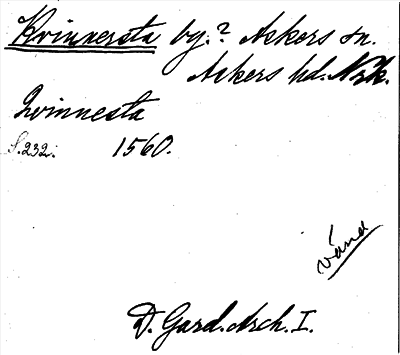 Kvinnersta by.? Askers sn.
Askers hd. Nrk.
Qvinnesta
S. 232. 1560.
vänd
D. Gard. Arch. I.